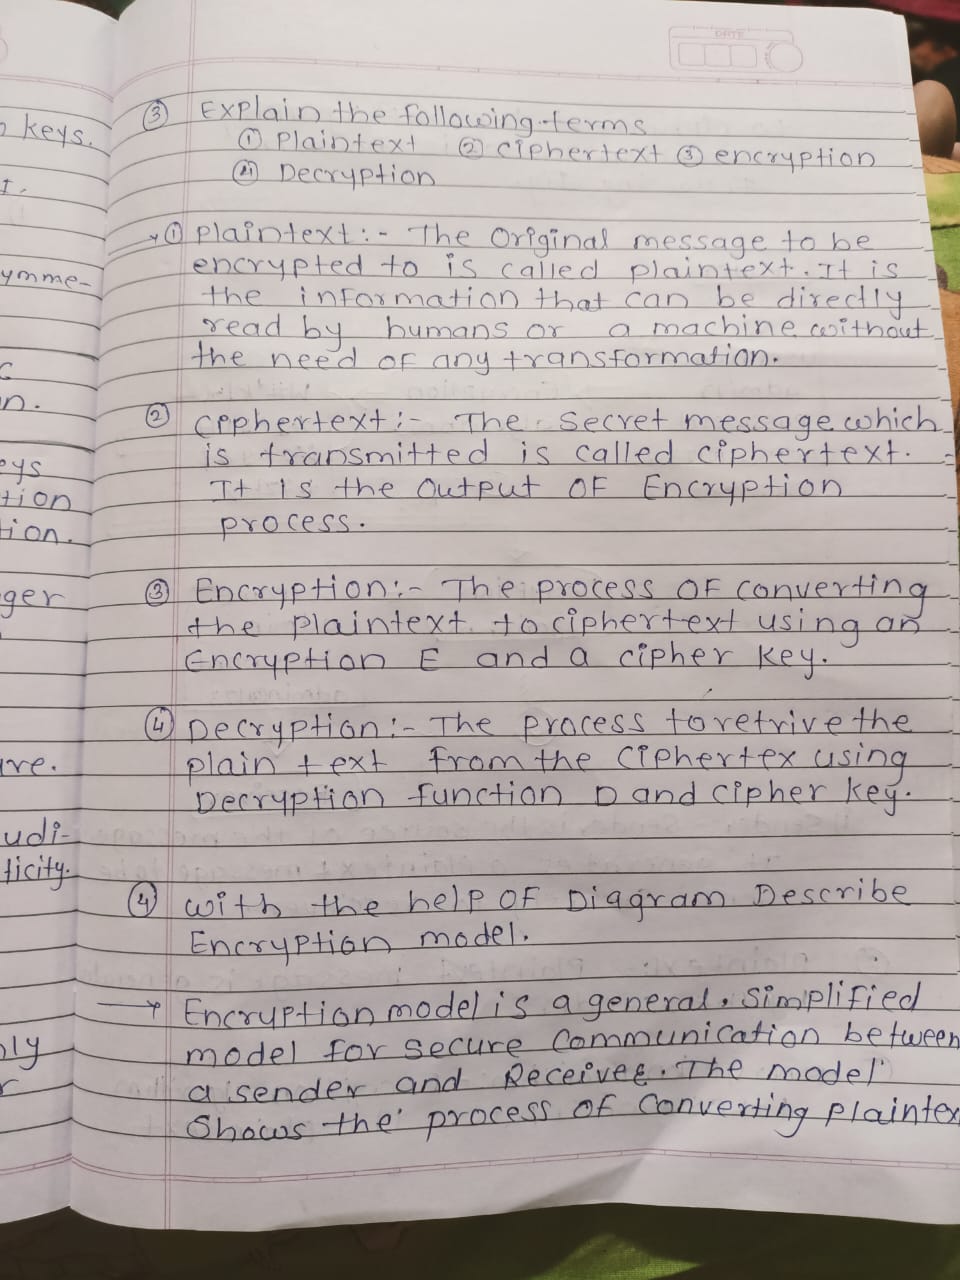 DATE
③ Explain the following terms
① Plaintext ② ciphertext ③ encryption
④ Decryption
① Plaintext :- The Original message to be
encrypted to is called plaintext. It is
the information that can be directly
read by humans or a machine without
the need of any transformation.
② Ciphertext :- The Secret message which
is transmitted is called ciphertext.
It is the output of Encryption
process.
③ Encryption :- The process of converting
the plaintext to ciphertext using an
Encryption E and a cipher key.
④ Decryption :- The process to retrive the
plain text from the ciphertex using
Decryption function D and cipher key.
④ with the help of Diagram Describe
Encryption model.
→ Encryption model is a general. Simplified
model for secure Communication between
a sender and Receivee. The model
Shows the process of Converting plaintex
keys.
ymme-
n.
eys
tion
tion.
ger
ure.
udi-
ticity.
nly